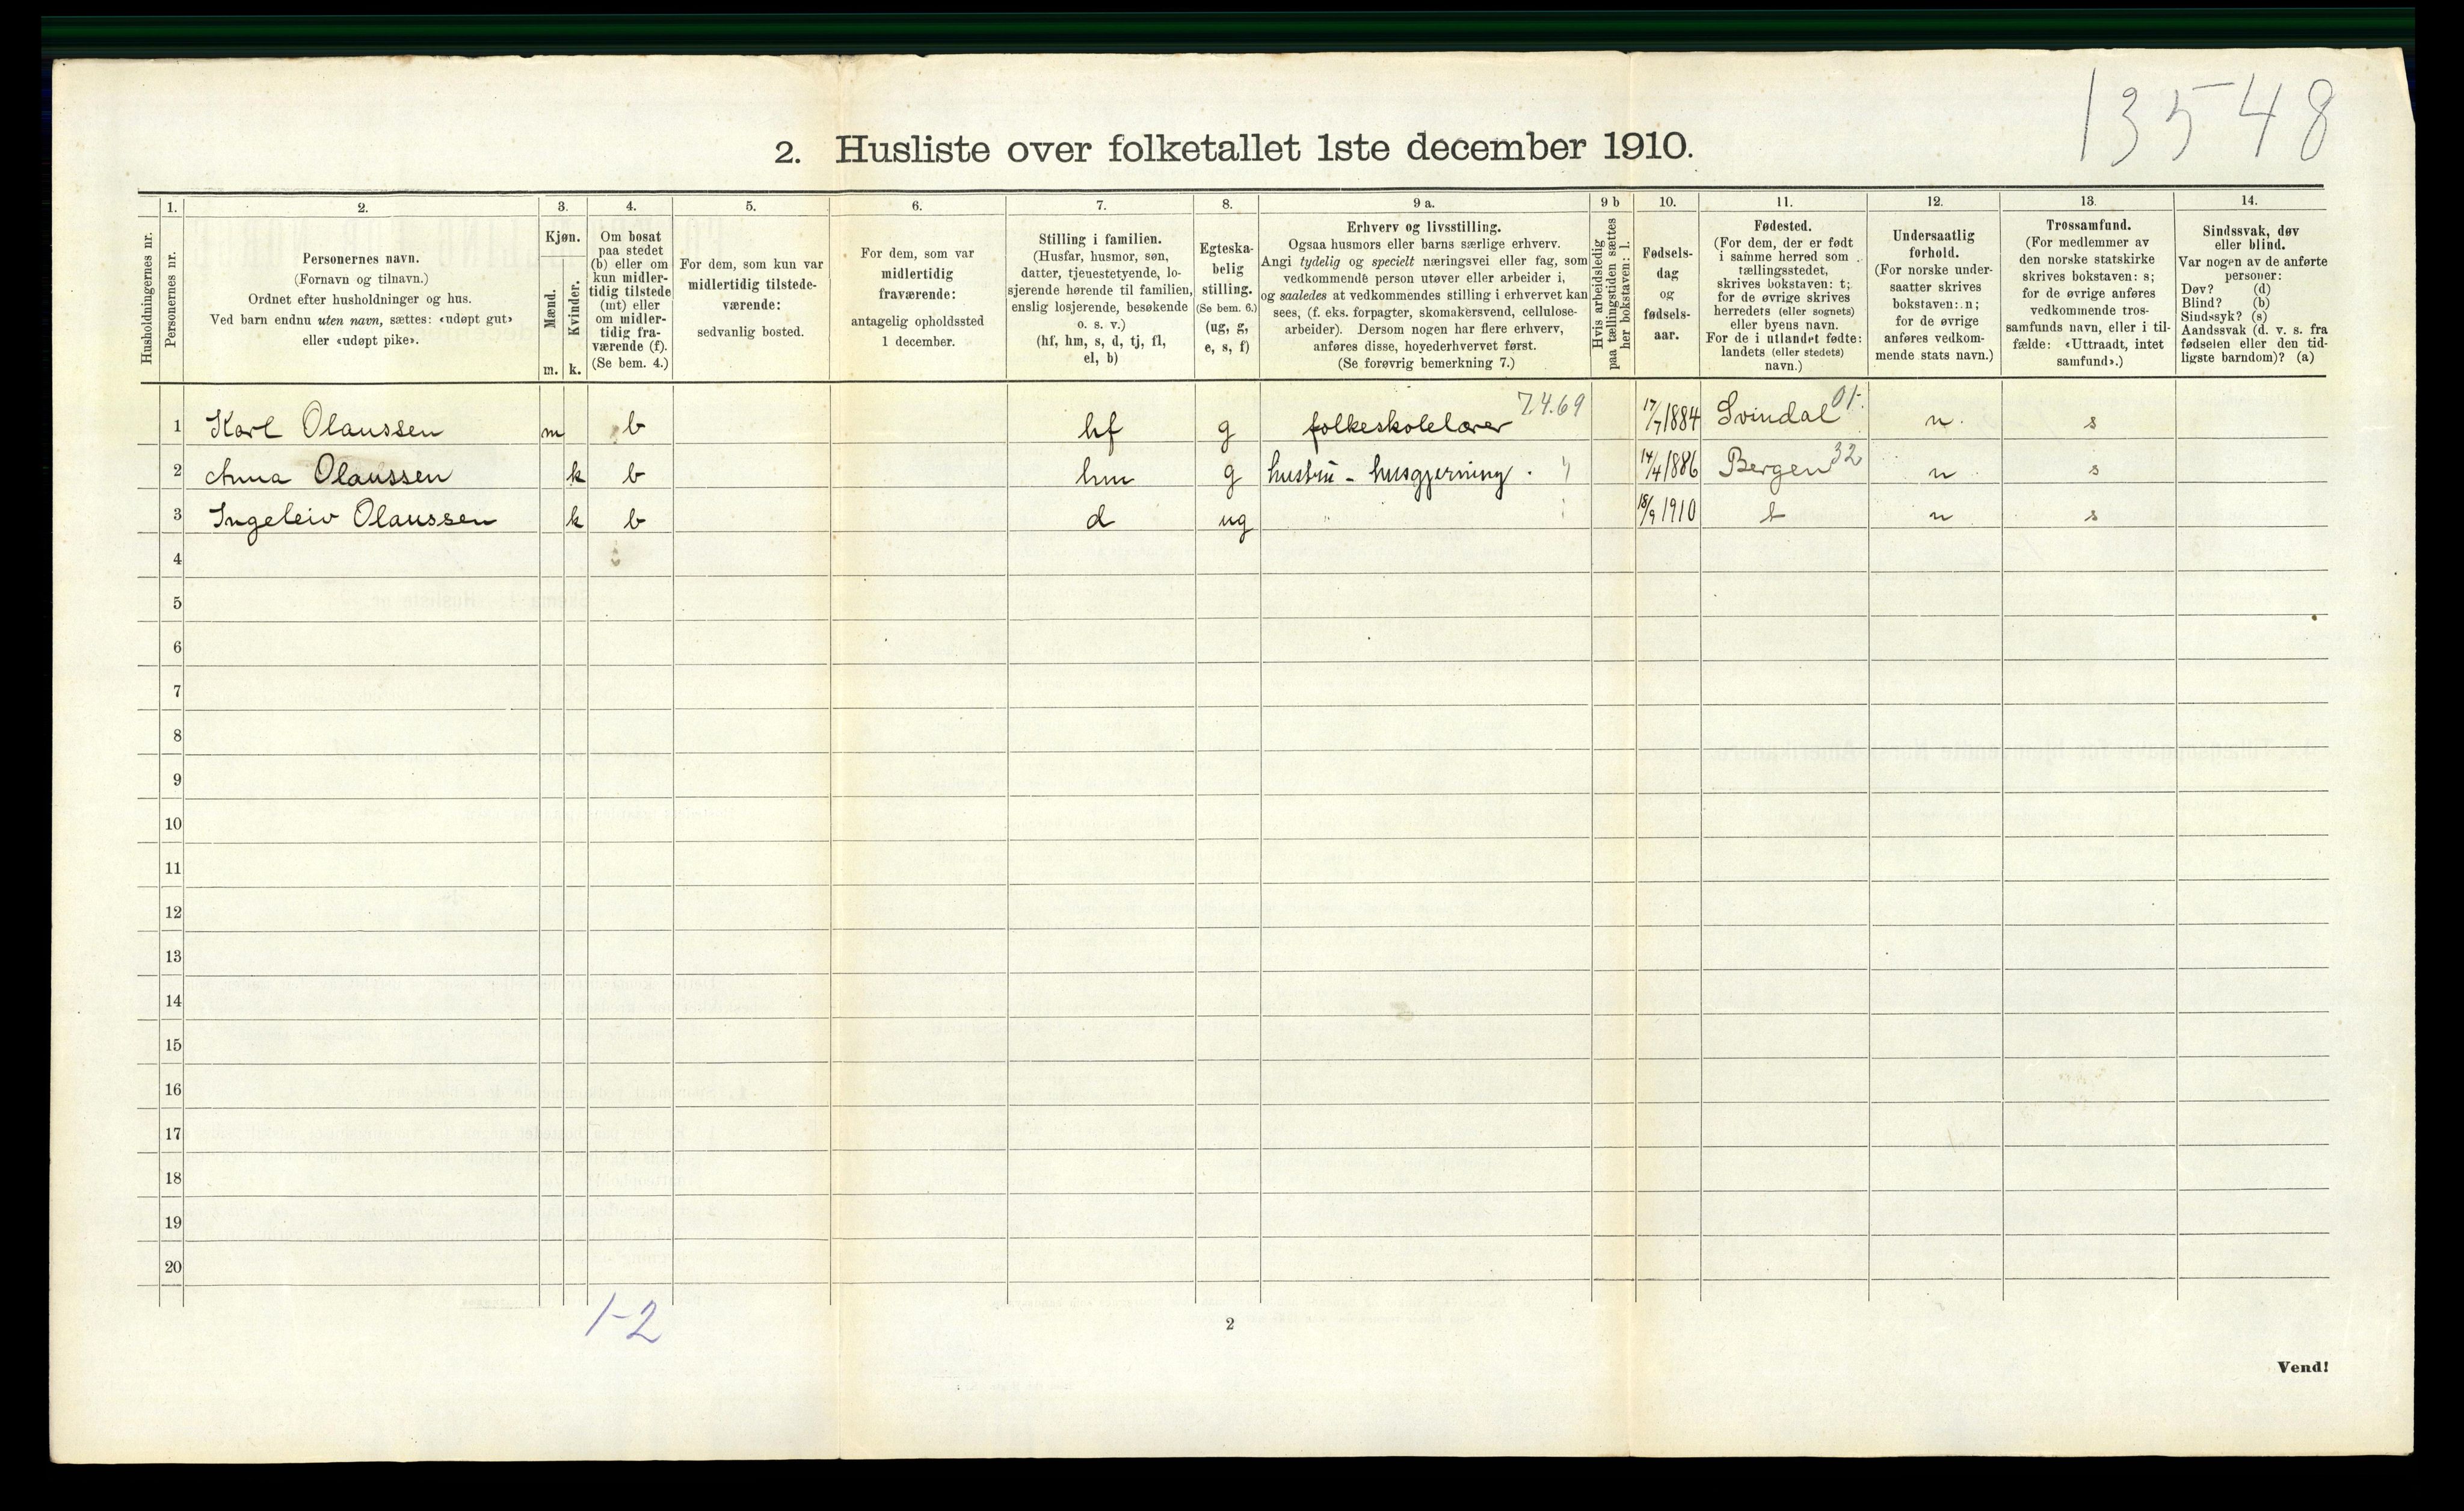 13548
2. Husliste over folketallet 1ste december 1910.
Husholdningernes nr.
1.
Personernes nr.
2.
Personernes navn.
(Fornavn og tilnavn.)
Ordnet efter husholdninger og hus.
Ved barn endnu uten navn, sættes: «udøpt gut»
eller «udøpt pike».
3.
Kjøn.
Mænd.
m.
Kvinder.
k.
4.
Om bosat
paa stedet
(b) eller om
kun midler-
tidig tilstede
(mt) eller
om midler-
tidig fra-
værende (f).
(Se bem. 4.)
5.
For dem, som kun var
midlertidig tilstede-
værende:
sedvanlig bosted.
6.
For dem, som var
midlertidig
fraværende:
antagelig opholdssted
1 december.
7.
Stilling i familien.
(Husfar, husmor, søn,
datter, tjenestetyende, lo-
sjerende hørende til familien,
enslig losjerende, besøkende
o. s. v.)
(hf, hm, s, d, tj, fl,
el, b)
8.
Egteska-
belig
stilling.
(Se bem. 6.)
(ug, g,
e, s, f)
9 a.
Erhverv og livsstilling.
Ogsaa husmors eller barns særlige erhverv.
Angi tydelig og specielt næringsvei eller fag, som
vedkommende person utøver eller arbeider i,
og saaledes at vedkommendes stilling i erhvervet kan
sees, (f. eks. forpagter, skomakersvend, cellulose-
arbeider). Dersom nogen har flere erhverv,
anføres disse, hovederhvervet først.
(Se forøvrig bemerkning 7.)
9 b
Hvis arbeidsledig
paa tællingstiden sættes
her bokstaven: l.
10.
Fødsels-
dag
og
fødsels-
aar.
11.
Fødested.
(For dem, der er født
i samme herred som
tællingsstedet,
skrives bokstaven: t;
for de øvrige skrives
herredets (eller sognets)
eller byens navn.
For de i utlandet fødte:
landets (eller stedets)
navn.)
12.
Undersaatlig
forhold.
(For norske under-
saatter skrives
bokstaven: n;
for de øvrige
anføres vedkom-
mende stats navn.)
13.
Trossamfund.
(For medlemmer av
den norske statskirke
skrives bokstaven: s;
for de øvrige anføres
vedkommende tros-
samfunds navn, eller i til-
fælde: «Uttraadt, intet
samfund».)
14.
Sindssvak, døv
eller blind.
Var nogen av de anførte
personer:
Døv? (d)
Blind? (b)
Sindssyk? (s)
Aandssvak (d. v. s. fra
fødselen eller den tid-
ligste barndom)? (a)
1 Karl Olaussen m b hf g folkeskolelærer 7.4.69 17/7 1884 Svindal 01. n. s
2 Anna Olaussen k b hm g hustru - husgjerning. 14/4 1886 Bergen 32 n s
3 Ingeleiv Olaussen k b d ug 18/9 1910 t n s
4
5
6
7
8
9
10
11
12
13
14
15
16
17
18
19
20
1-2
2
Vend!